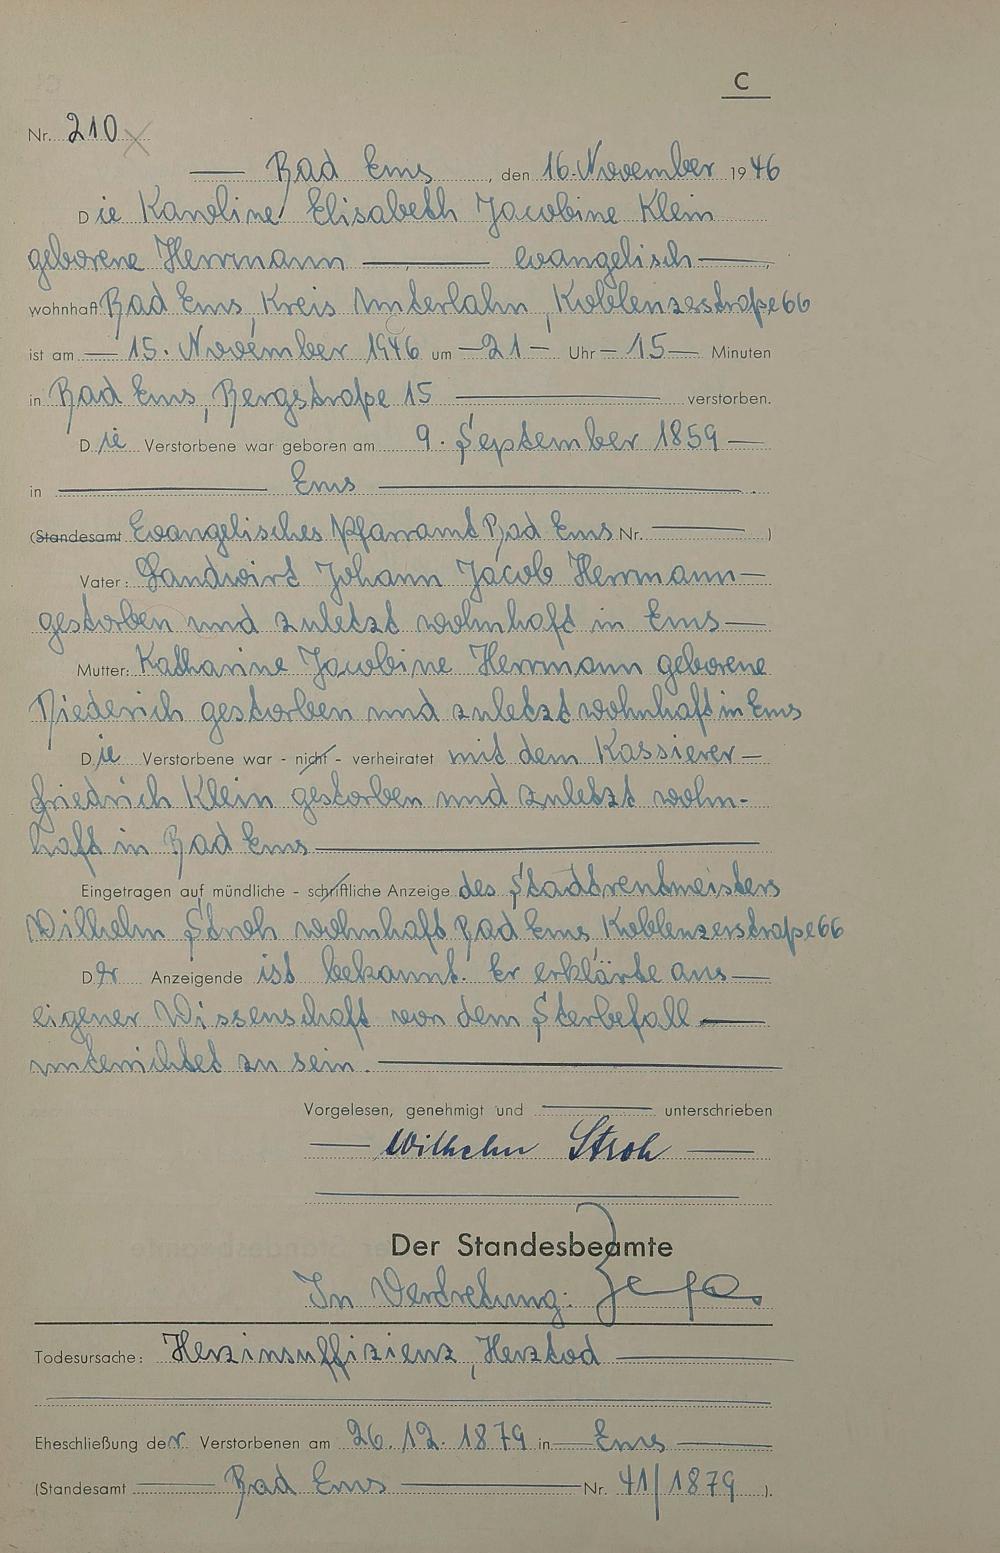 C
Nr. 210
Bad Ems, den 16. November 1946
Die Karoline Elisabeth Jacobine Klein
geborene Herrmann evangelisch
wohnhaft Bad Ems, Kreis Unterlahn, Koblenzerstraße 66
ist am 15. November 1946 um 21 Uhr 15 Minuten
in Bad Ems, Bergstraße 15 verstorben.
Die Verstorbene war geboren am 9. September 1859
in Ems
(Standesamt Evangelisches Pfarramt Bad Ems Nr. )
Vater: Landwirt Johann Jacob Herrmann
gestorben und zuletzt wohnhaft in Ems
Mutter: Katharine Jacobine Herrmann geborene
Niederich gestorben und zuletzt wohnhaft in Ems
Die Verstorbene war - nicht - verheiratet mit dem Kassierer
Friedrich Klein gestorben und zuletzt wohn-
haft in Bad Ems
Eingetragen auf mündliche - schriftliche Anzeige des Stadtrentmeisters
Wilhelm Stroh wohnhaft Bad Ems Koblenzerstraße 66
Der Anzeigende ist bekannt. Er erklärte aus
eigener Wissenschaft von dem Sterbefall
unterrichtet zu sein.
Vorgelesen, genehmigt und unterschrieben
Wilhelm Stroh
Der Standesbeamte
In Vertretung:
Todesursache: Herzinsuffizienz, Herztod
Eheschließung der Verstorbenen am 26.12.1879 in Ems
(Standesamt Bad Ems Nr. 41/1879 ).